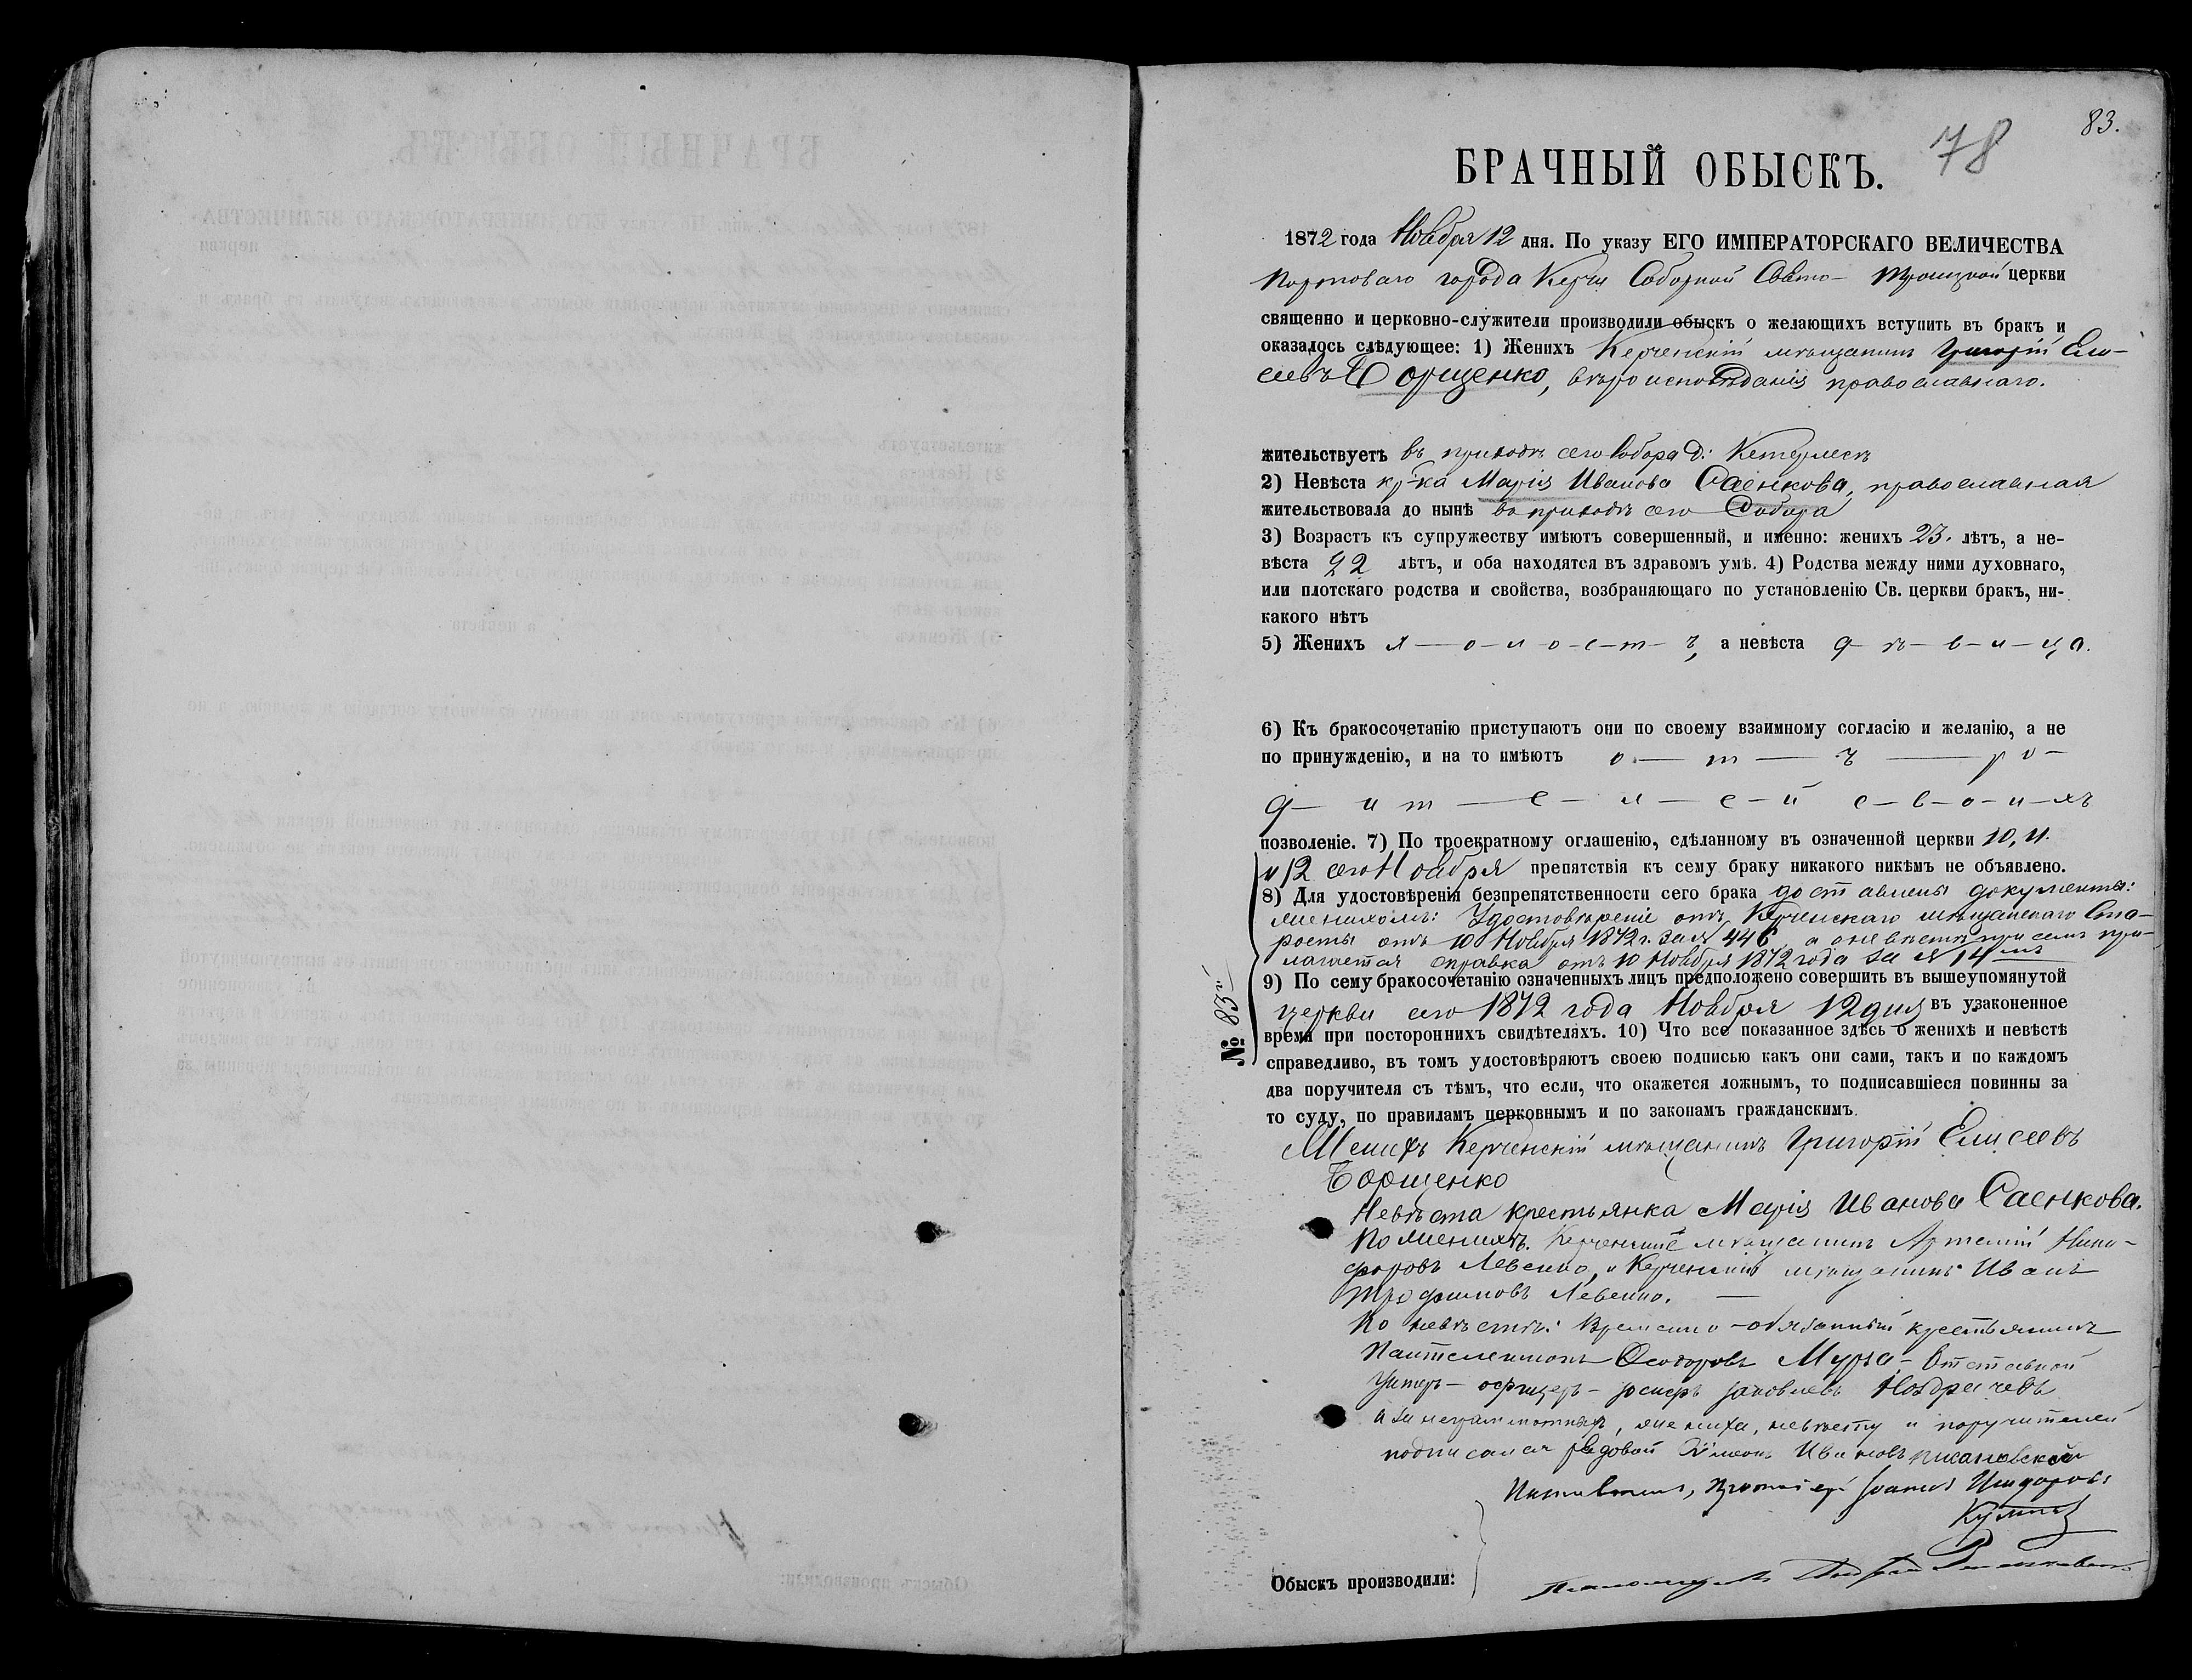 83.
78
БРАЧНЫЙ ОБЫСКЪ.
1872 года Ноября 12 дня. По указу ЕГО ИМПЕРАТОРСКАГО ВЕЛИЧЕСТВА
Портоваго города Керчи Соборной Свято-Троицкой церкви
священно и церковно-служители производили обыскъ о желающихъ вступить въ бракъ и
оказалось слѣдующее: 1) Женихъ Керченскій мѣщанинъ Григорій Ели-
сеевъ Борщенко, вѣроисповѣданія православнаго.
жительствуетъ въ приходѣ сего Собора д:
2) Невѣста кр-ка Марія Иванова Саенкова, православная
жительствовала до нынѣ въ приходѣ сего Собора
3) Возрастъ къ супружеству имѣютъ совершенный, и именно: женихъ 23. лѣтъ, а не-
вѣста 22 лѣтъ, и оба находятся въ здравомъ умѣ. 4) Родства между ними духовнаго,
или плотскаго родства и свойства, возбраняющаго по установленію Св. церкви бракъ, ни-
какого нѣтъ
5) Женихъ х—о—л—о—с—т—ъ, а невѣста д—ѣ—в—и—ца.
6) Къ бракосочетанію приступаютъ они по своему взаимному согласію и желанію, а не
по принужденію, и на то имѣютъ о—т—ъ—ро—
д—и т—е—л—е—й с—в—о—и—хъ
позволеніе. 7) По троекратному оглашенію, сдѣланному въ означенной церкви 10, 11.
и 12 сего Ноября препятствія къ сему браку никакого никѣмъ не объявлено.
8) Для удостовѣренія безпрепятственности сего брака доставлены документы:
женихомъ: Удостовѣреніе отъ Керченскаго мѣщанскаго Ста-
росты отъ 10 Ноября 1872 г. за № 446, а о невѣстѣ при семъ при-
лагается справка отъ 10 Ноября 1872 года за № 14мъ
9) По сему бракосочетанію означенныхъ лицъ предположено совершить въ вышеупомянутой
церкви сего 1872 года Ноября 12 дня въ узаконенное
№ 83й
время при постороннихъ свидѣтеляхъ. 10) Что все показанное здѣсь о женихѣ и невѣстѣ
справедливо, въ томъ удостовѣряютъ своею подписью какъ они сами, такъ и по каждомъ
два поручителя съ тѣмъ, что если, что окажется ложнымъ, то подписавшіеся повинны за
то суду, по правиламъ церковнымъ и по законамъ гражданскимъ.
Женихъ Керченскій мѣщанинъ Григорій Елисеевъ
Борщенко
Невѣста крестьянка Марія Иванова Саенкова.
По женихѣ. Керченскіе мѣщанинъ Артемій Ники-
форовъ Левенко, и Керченскій мѣщанинъ Иванъ
Трофимовъ Левенко.
По невѣстѣ: Временно-обязанный крестьянинъ
Пантелеимонъ Ѳеодоровъ Мурза—Отставной
Унтеръ-офицеръ— Яковлевъ Ноздрачевъ
а за неграмотныхъ, жениха, невѣсту и поручителей
подписался рядовой Симеонъ Ивановъ
Протоіерей Іоаннъ
Обыскъ производили: